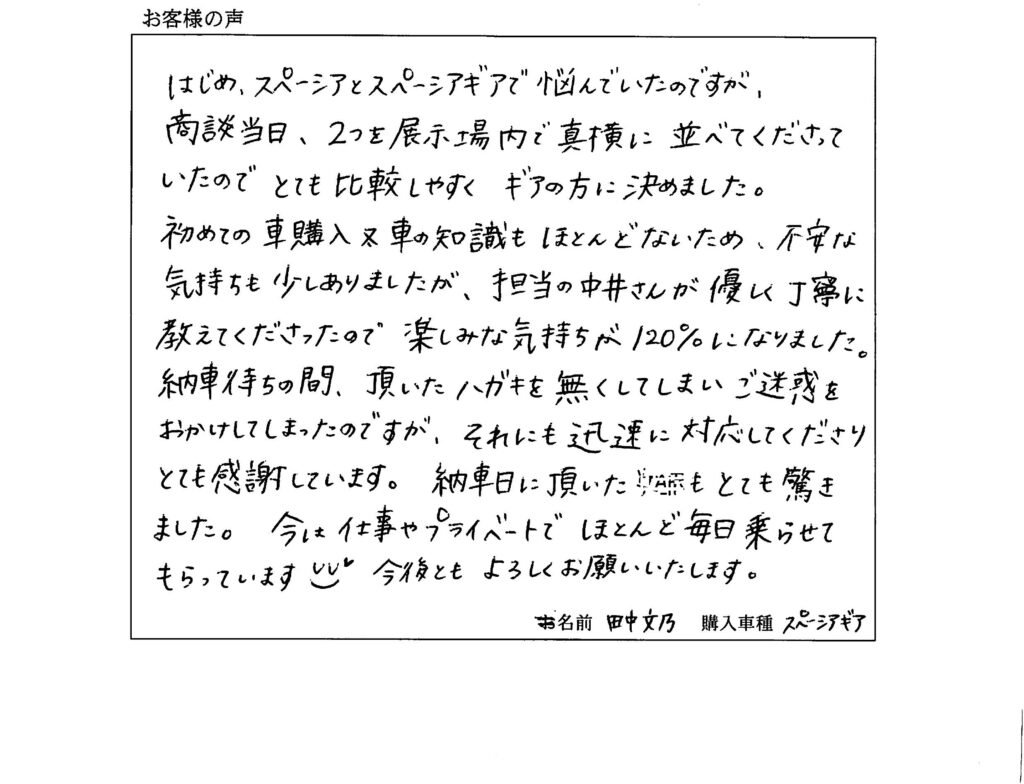 お客様の声
はじめ、スペーシアとスペーシアギアで悩んでいたのですが、
商談当日、2つを展示場内で真横に並べてくださって
いたのでとても比較しやすくギアの方に決めました。
初めての車購入又車の知識もほとんどないため、不安な
気持ちも少しありましたが、担当の中井さんが優しく丁寧に
教えてくださったので楽しみな気持ちが120%になりました。
納車待ちの間、頂いたハガキを無くしてしまいご迷惑を
おかけしてしまったのですが、それにも迅速に対応してくださり
とても感謝しています。納車日に頂いたもとても驚き
ました。今は仕事やプライベートでほとんど毎日乗らせて
もらっています 今後ともよろしくお願いいたします。
お名前 田中文乃 購入車種 スペーシアギア